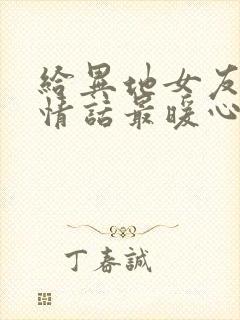 給異地女友
情話最暖心
丁春誠